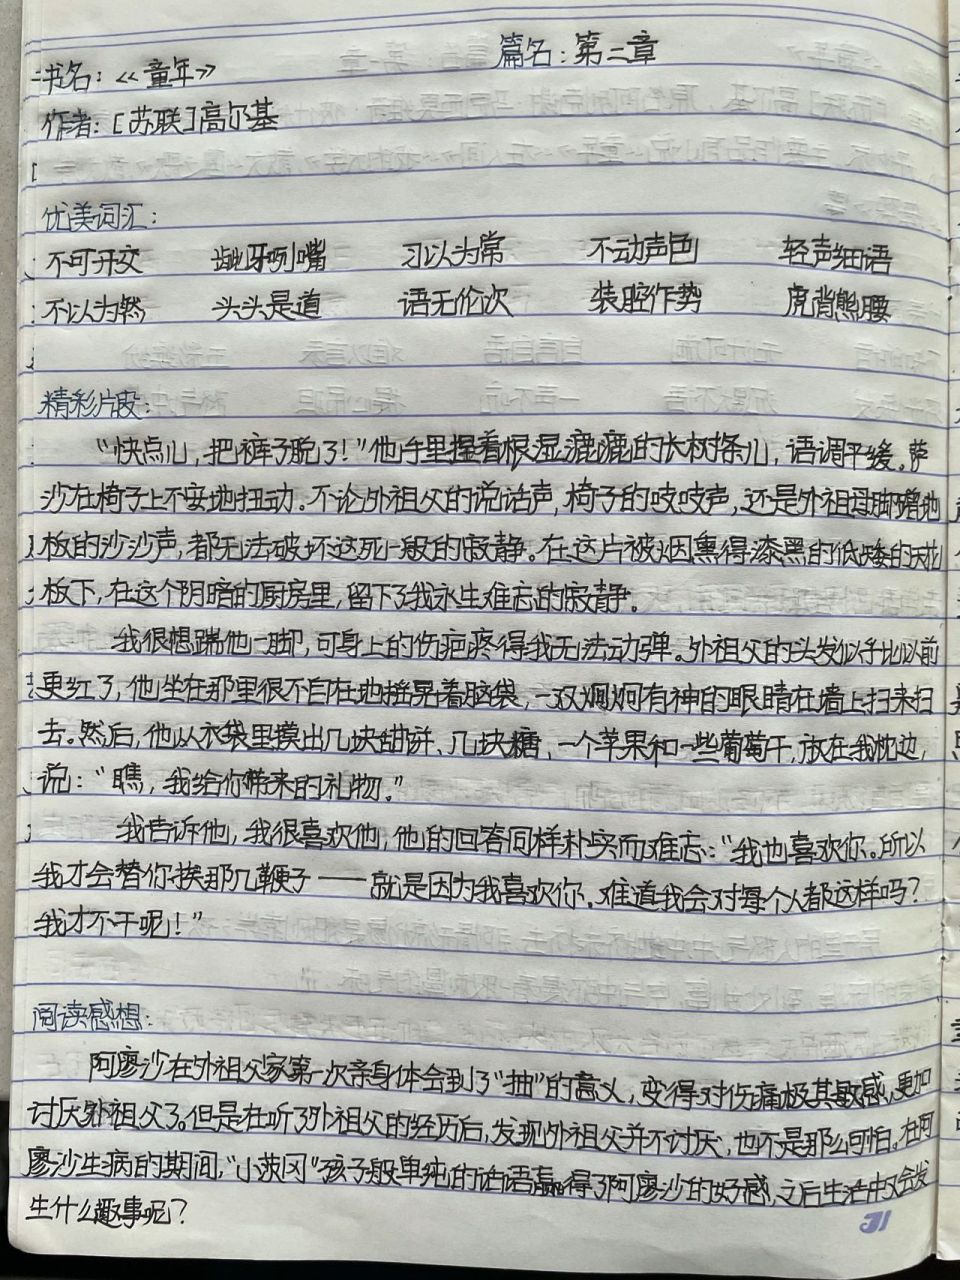 篇名：第二章
书名：《童年》
作者：[苏联]高尔基
优美词汇：
不可开交 龇牙咧嘴 习以为常 不动声色 轻声细语
不以为然 头头是道 语无伦次 装腔作势 虎背熊腰
精彩片段：
“快点儿，把裤子脱了！”他手里握着根湿漉漉的长树条儿，语调平缓。萨
沙在椅子上不安地扭动。不论外祖父的说话声，椅子的吱吱声，还是外祖母脚蹭地
板的沙沙声，都无法破坏这死一般的寂静。在这片被烟熏得漆黑的低矮的天花
板下，在这个阴暗的厨房里，留下了我永生难忘的寂静。
我很想踹他一脚，可身上的伤疤疼得我无法动弹。外祖父的头发似乎比以前
更红了，他坐在那里很不自在地摇晃着脑袋，一双炯炯有神的眼睛在墙上扫来扫
去。然后，他从衣袋里摸出几块甜饼、几块糖，一个苹果和一些葡萄干，放在我枕边，
说：“瞧，我给你带来的礼物。”
我告诉他，我很喜欢他，他的回答同样朴实而难忘：“我也喜欢你。所以
我才会替你挨那几鞭子——就是因为我喜欢你。难道我会对每个人都这样吗？
我才不干呢！”
阅读感想：
阿廖沙在外祖父家第一次亲身体会到了“抽”的意义，变得对伤痛极其敏感，更加
讨厌外祖父了。但是在听了外祖父的经历后，发现外祖父并不讨厌，也不是那么可怕。在阿
廖沙生病的期间，“小茨冈”孩子般单纯的话语赢得了阿廖沙的好感，之后生活中又会发
生什么趣事呢？
31